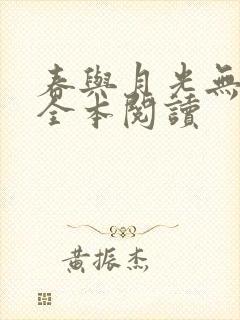 春與月光無
全本閱讀
黃振杰